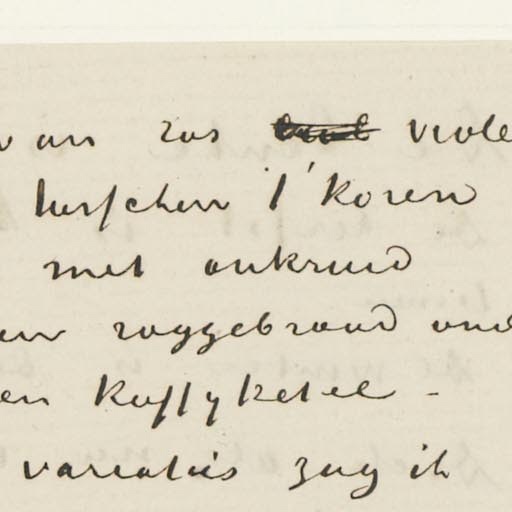 van ros viole
tusschen 't koren
met onkruid
roggebrood ond
en koffyketel -
variaties zag ik